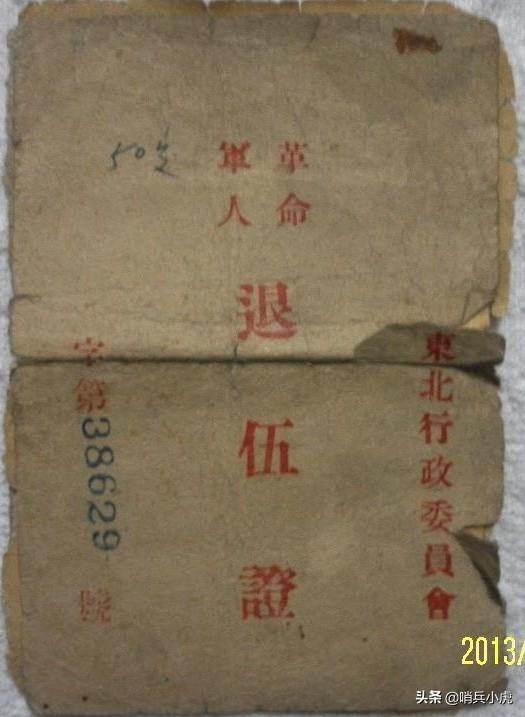 東北行政委員會
革命
軍人
退伍證
字第38629號
50
2013/
头条 @哨兵小虎